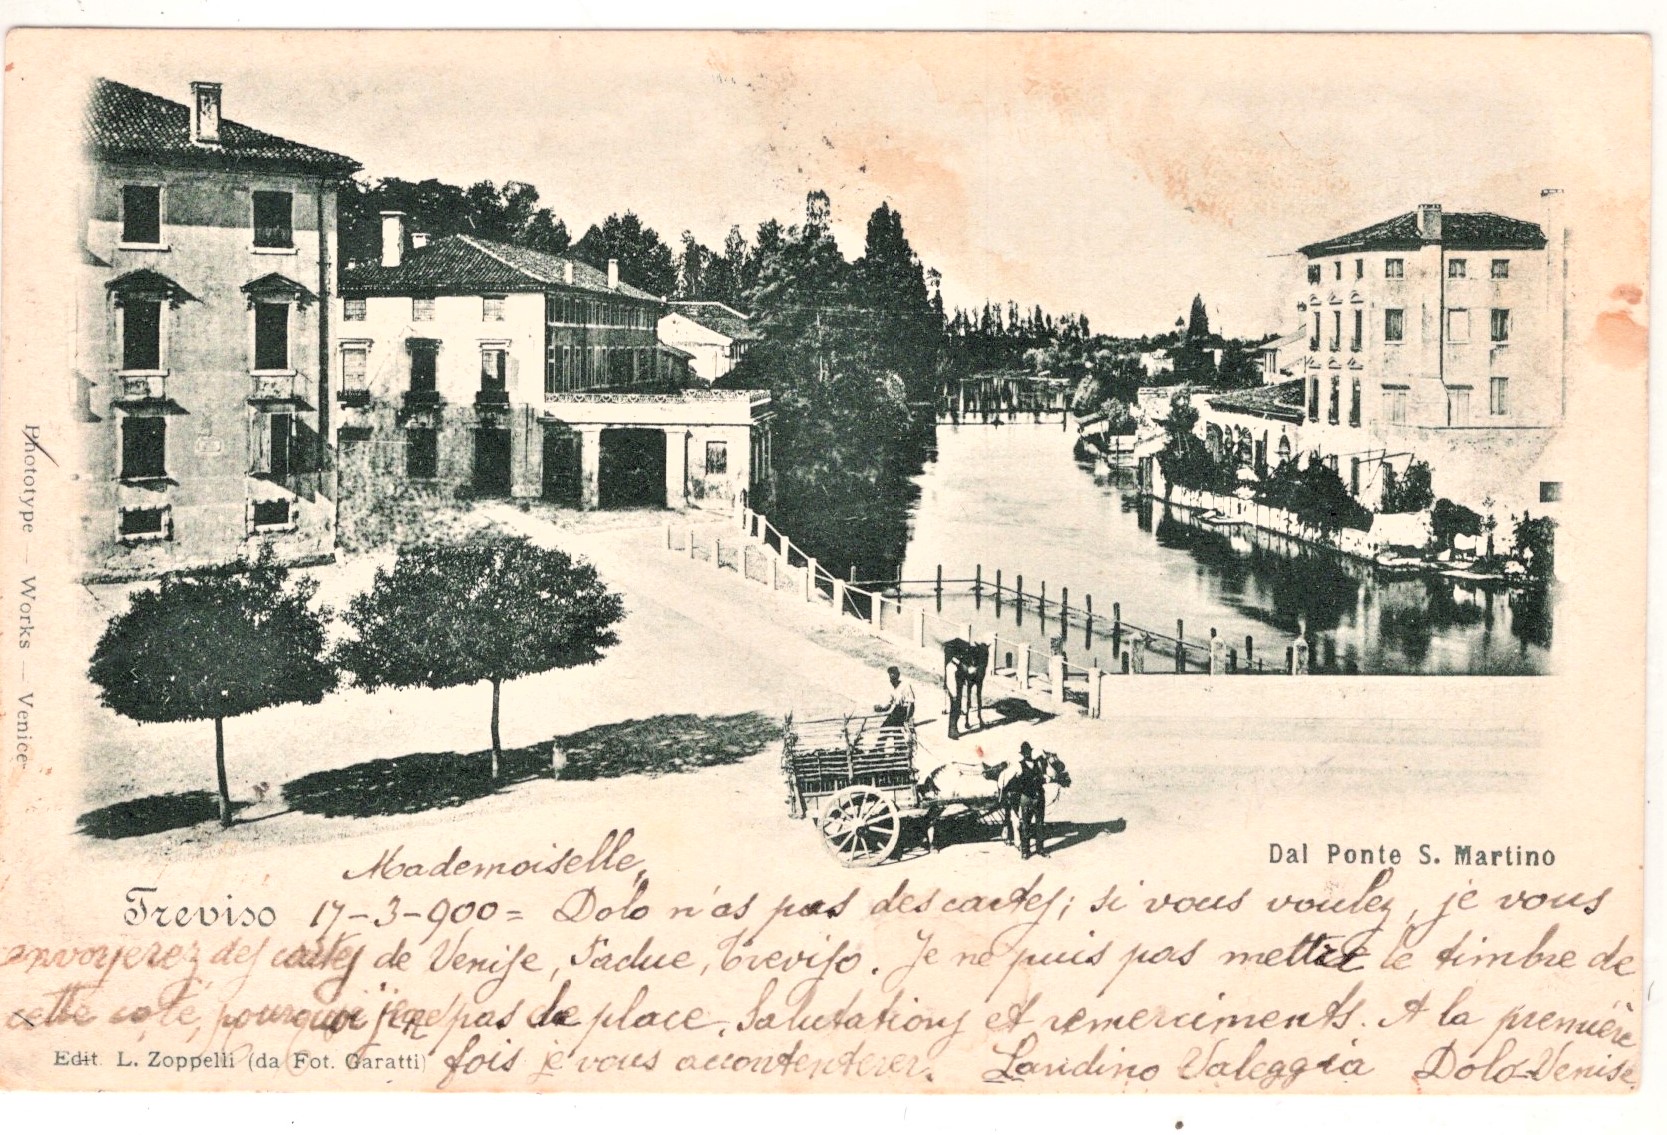 Phototype — Works — Venice
Dal Ponte S. Martino
Mademoiselle,
Treviso 17-3-900= Dolo n'as pas des cartes; si vous voulez, je vous
envoyerez des cartes de Venise, Padue, Treviso. Je ne puis pas mettre le timbre de
cette coté, pourquoi pas de place. Salutations et remerciments. A la première
Edit. L. Zoppelli (da Fot. Garatti) fois je vous accontenterer. Landino Valeggia Dolo-Venise